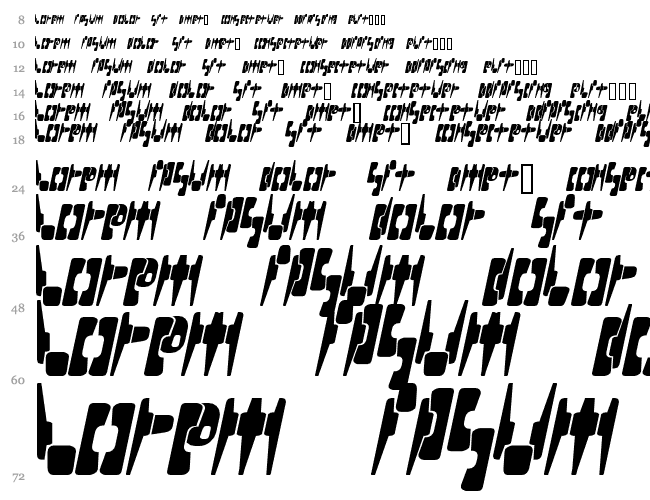 8 Lorem ipsum dolor sit amet□ consectetuer adipiscing elit□□□
10 Lorem ipsum dolor sit amet□ consectetuer adipiscing elit□□□
12 Lorem ipsum dolor sit amet□ consectetuer adipiscing elit□□□
14 Lorem ipsum dolor sit amet□ consectetuer adipiscing elit□□□
16 Lorem ipsum dolor sit amet□ consectetuer adipiscing
18 Lorem ipsum dolor sit amet□ consectetuer
24 Lorem ipsum dolor sit amet□
36 Lorem ipsum dolor sit
48 Lorem ipsum dolor
60 Lorem ipsum
72 Lorem ipsum